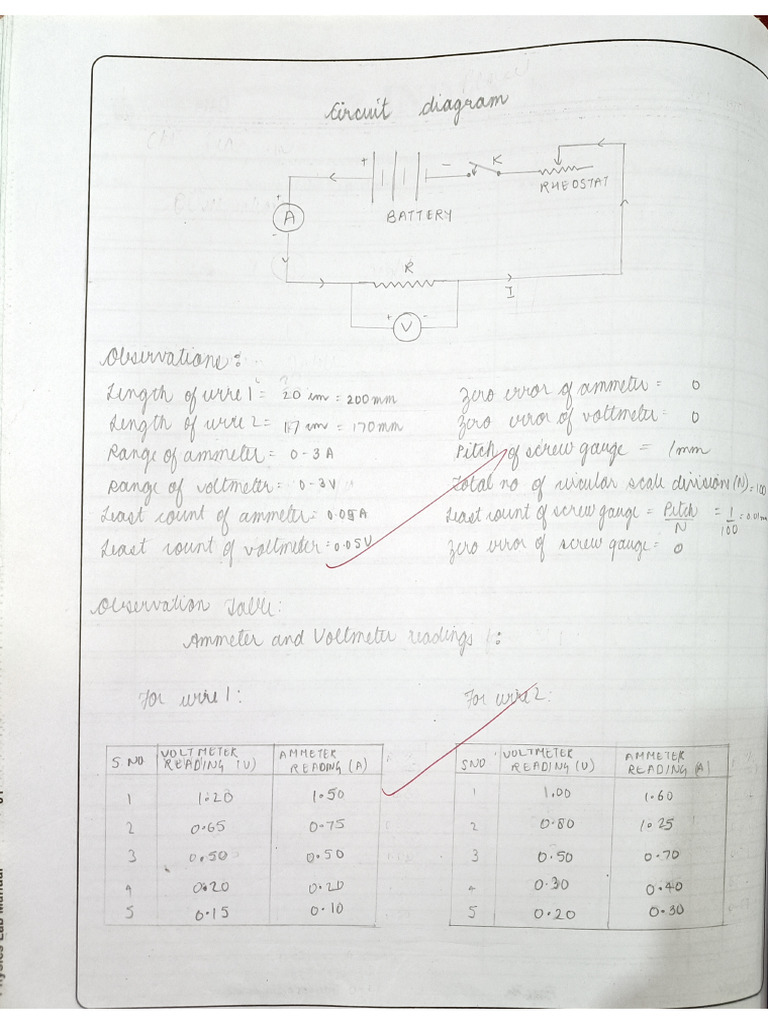 Circuit diagram
+ - K
RHEOSTAT
+
A
-
BATTERY
R
I
+ V -
Observations:
Length of wire 1 = 20 cm = 200mm
Zero error of ammeter = 0
Length of wire 2 = 17 cm = 170mm
Zero error of voltmeter = 0
Range of ammeter = 0-3A
Pitch of screw gauge = 1mm
Range of voltmeter = 0-3V
Total no of circular scale division (N) = 100
Least count of ammeter = 0.05A
Least count of screw gauge = Pitch/N = 1/100 = 0.01m
Least count of voltmeter = 0.05V
Zero error of screw gauge = 0
Observation Table:
Ammeter and Voltmeter readings :
For wire 1:
For wire 2:
S NO VOLTMETER READING (V) AMMETER READING (A)
1 1.20 1.50
2 0.65 0.75
3 0.50 0.50
4 0.20 0.20
5 0.15 0.10
SNO VOLTMETER READING (V) AMMETER READING (A)
1 1.00 1.60
2 0.80 1.25
3 0.50 0.70
4 0.30 0.40
5 0.20 0.30